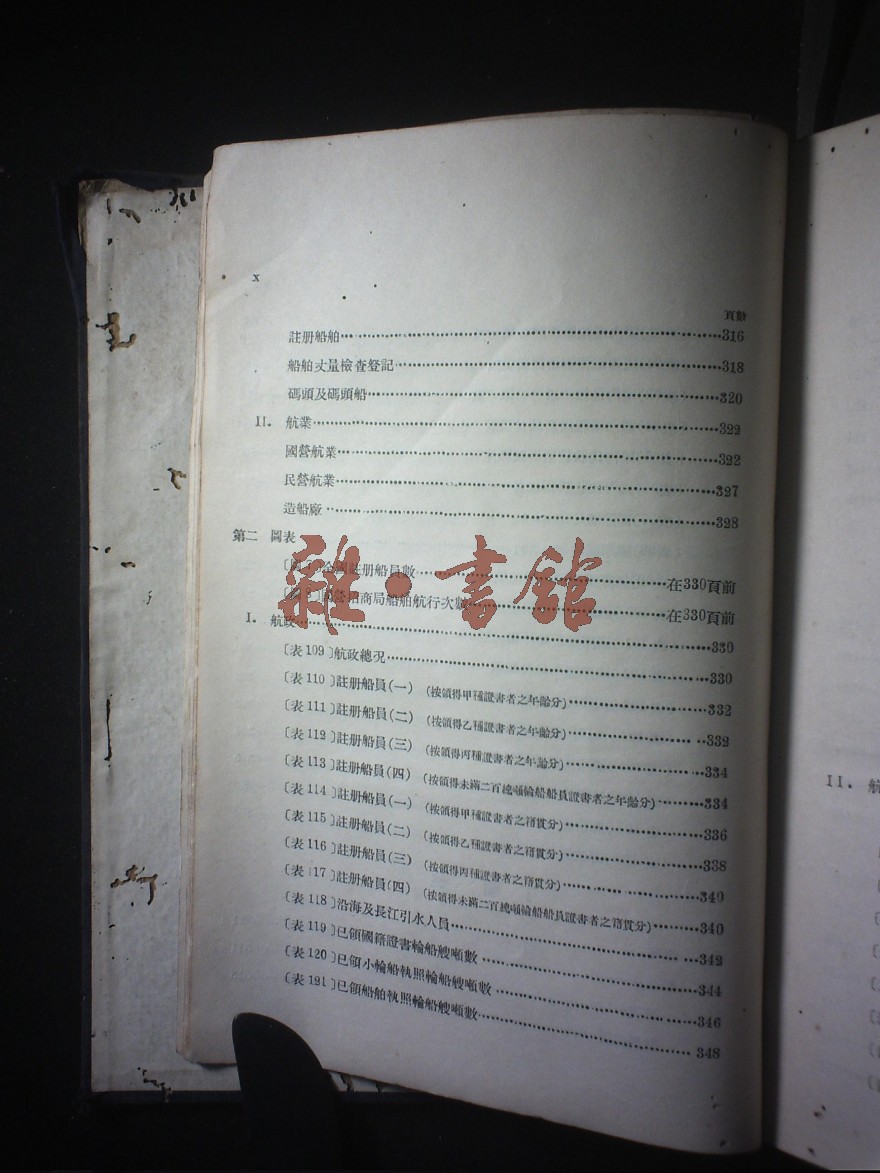 x
頁數
註册船舶……316
船舶丈量檢查登記……318
碼頭及碼頭船……320
II. 航業……322
國營航業……322
民營航業……327
造船廠……328
第二 圖表
全國註册船員數……在330頁前
招商局船舶航行次數……在330頁前
I. 航政……330
〔表109〕航政總況……330
〔表110〕註册船員(一) (按領得甲種證書者之年齡分)……332
〔表111〕註册船員(二) (按領得乙種證書者之年齡分)……332
〔表112〕註册船員(三) (按領得丙種證書者之年齡分)……334
〔表113〕註册船員(四) (按領得未滿二百總噸輪船船員證書者之年齡分)……334
〔表114〕註册船員(一) (按領得甲種證書者之籍貫分)……336
〔表115〕註册船員(二) (按領得乙種證書者之籍貫分)……338
〔表116〕註册船員(三) (按領得丙種證書者之籍貫分)……340
〔表117〕註册船員(四) (按領得未滿二百總噸輪船船員證書者之籍貫分)……340
〔表118〕沿海及長江引水人員……342
〔表119〕已領國籍證書輪船艘噸數……344
〔表120〕已領小輪船執照輪船艘噸數……346
〔表121〕已領船舶執照輪船艘噸數……348
雜·書館
II. 航